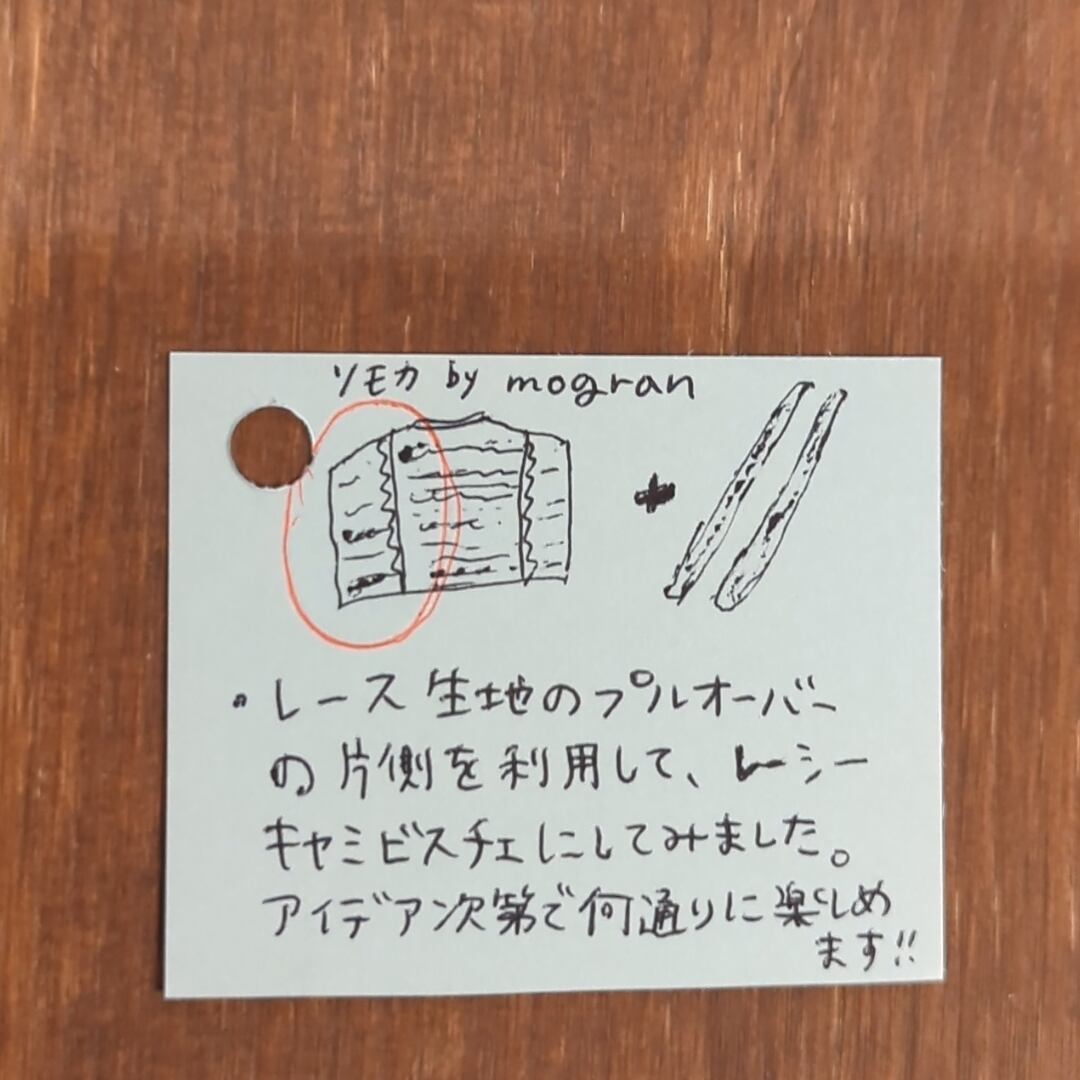 ソモカ by mogran
+
・レース生地のプルオーバー
の片側を利用して、レーシー
キャミビスチェにしてみました。
アイデアン次第で何通りに楽しめ
ます!!